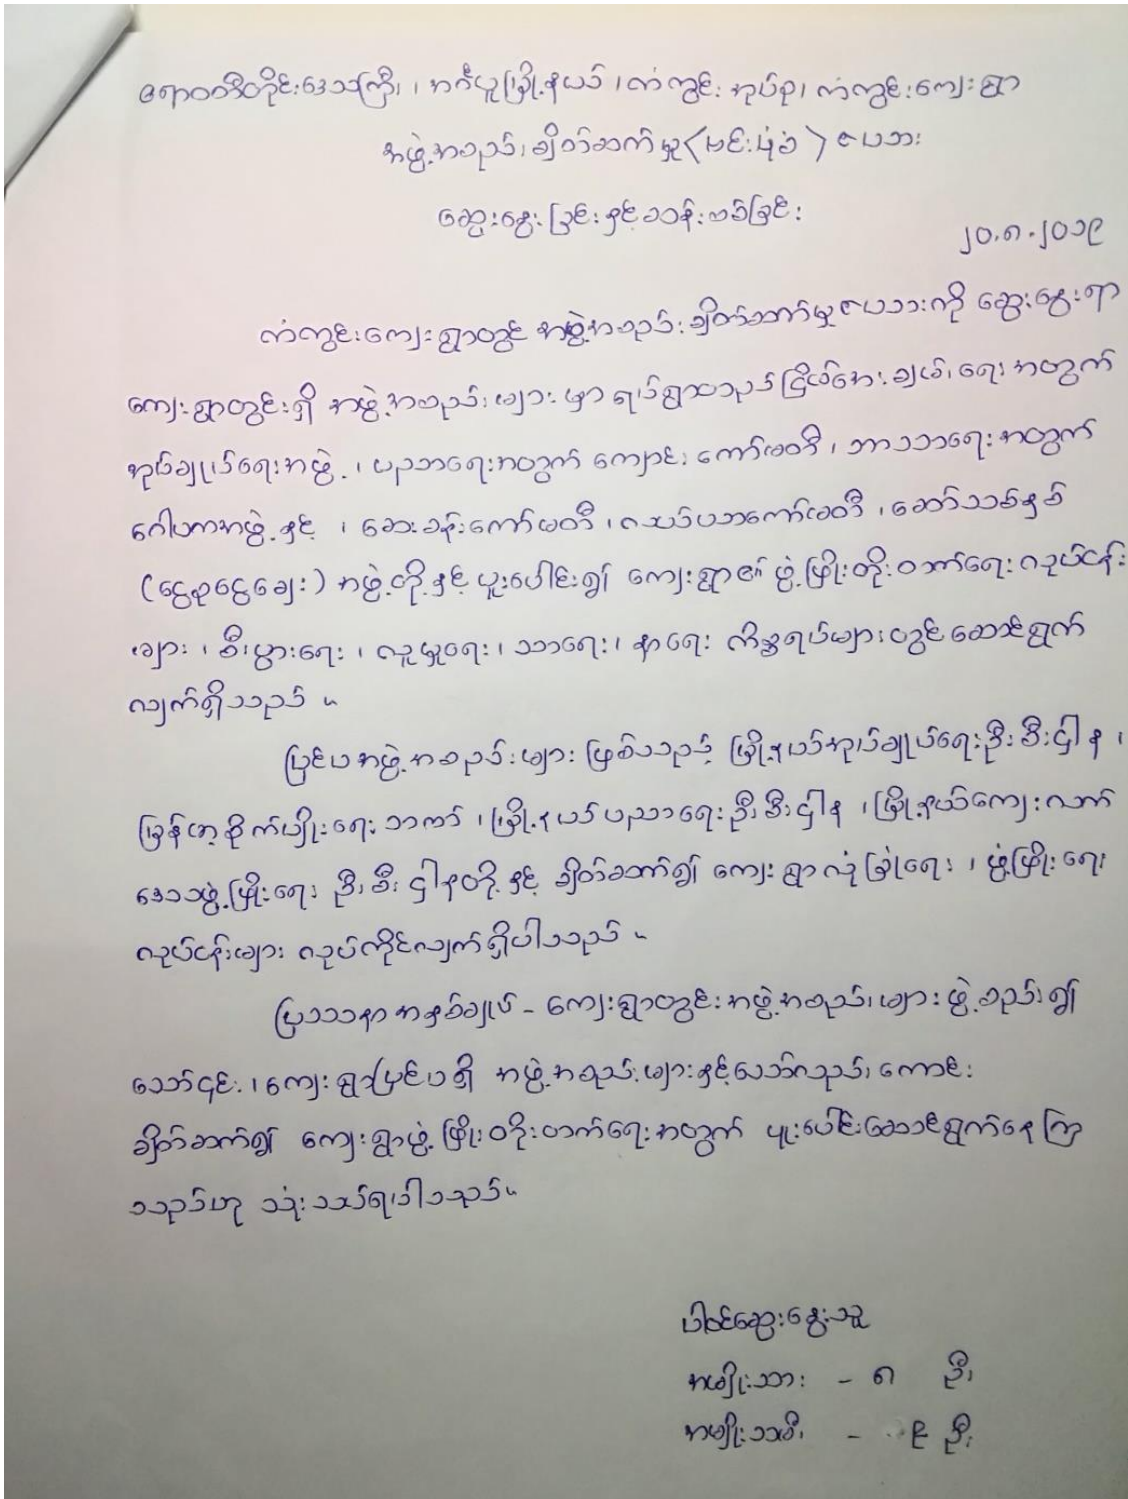 ဧရာဝတီတိုင်းဒေသကြီး၊ အင်္ဂပူမြို့နယ်၊ ကံကွင်းအုပ်စု၊ ကံကွင်းကျေးရွာ
အဖွဲ့အစည်းချိတ်ဆက်မှု (ဗင်းပုံစံ) ဇယား
ဆွေးနွေးခြင်းနှင့်ခဝန်းဗစ်ခြင်း
၂၀.၈.၂၀၁၉
ကံကွင်းကျေးရွာတွင် အဖွဲ့အစည်းချိတ်ဆက်မှုဇယားကို ဆွေးနွေးရာ
ကျေးရွာတွင်းရှိ အဖွဲ့အစည်းများမှာ ရပ်ရွာသာသည်ငြိမ်အေးချမ်းရေးအတွက်
အုပ်ချုပ်ရေးအဖွဲ့၊ ပညာရေးအတွက် ကျောင်းကော်မတီ၊ ဘာသာရေးအတွက်
ဂေါပကအဖွဲ့နှင့်၊ ဆေးခန်းကော်မတီ၊ လယ်ယာကော်မတီ၊ ဆော်သစ်နှစ်
(ငွေစုငွေချေး) အဖွဲ့တို့နှင့် ပူးပေါင်း၍ ကျေးရွာ၏ ဖွံ့ဖြိုးတိုးတက်ရေးလုပ်ငန်း
များ၊ စီးပွားရေး၊ လူမှုရေး၊ သာရေး၊ နာရေး ကိစ္စရပ်များတွင် ဆောင်ရွက်
လျက်ရှိသည်။
ပြင်ပအဖွဲ့အစည်းများဖြစ်သည့် မြို့နယ်အုပ်ချုပ်ရေးဦးစီးဌာန၊
မြန်မာ့စိုက်ပျိုးရေးဘဏ်၊ မြို့နယ်ပညာရေးဦးစီးဌာန၊ မြို့နယ်ကျေးလက်
ဒေသဖွံ့ဖြိုးရေးဦးစီးဌာနတို့နှင့် ချိတ်ဆက်၍ ကျေးရွာလုံခြုံရေး၊ ဖွံ့ဖြိုးရေး
လုပ်ငန်းများ လုပ်ကိုင်လျက်ရှိပါသည်။
ပြဿနာအနှစ်ချုပ် - ကျေးရွာတွင်းအဖွဲ့အစည်းများဖွဲ့စည်း၍
သော်၎င်း၊ ကျေးရွာပြင်ပရှိ အဖွဲ့အစည်းများနှင့်သော်လည်းကောင်း
ချိတ်ဆက်၍ ကျေးရွာဖွံ့ဖြိုးတိုးတက်ရေးအတွက် ပူးပေါင်းဆောင်ရွက်နေကြ
သည်ဟု သုံးသပ်ရပါသည်။
ပါဝင်ဆွေးနွေးသူ
အမျိုးသား - ၈ ဦး
အမျိုးသမီး - ၉ ဦး